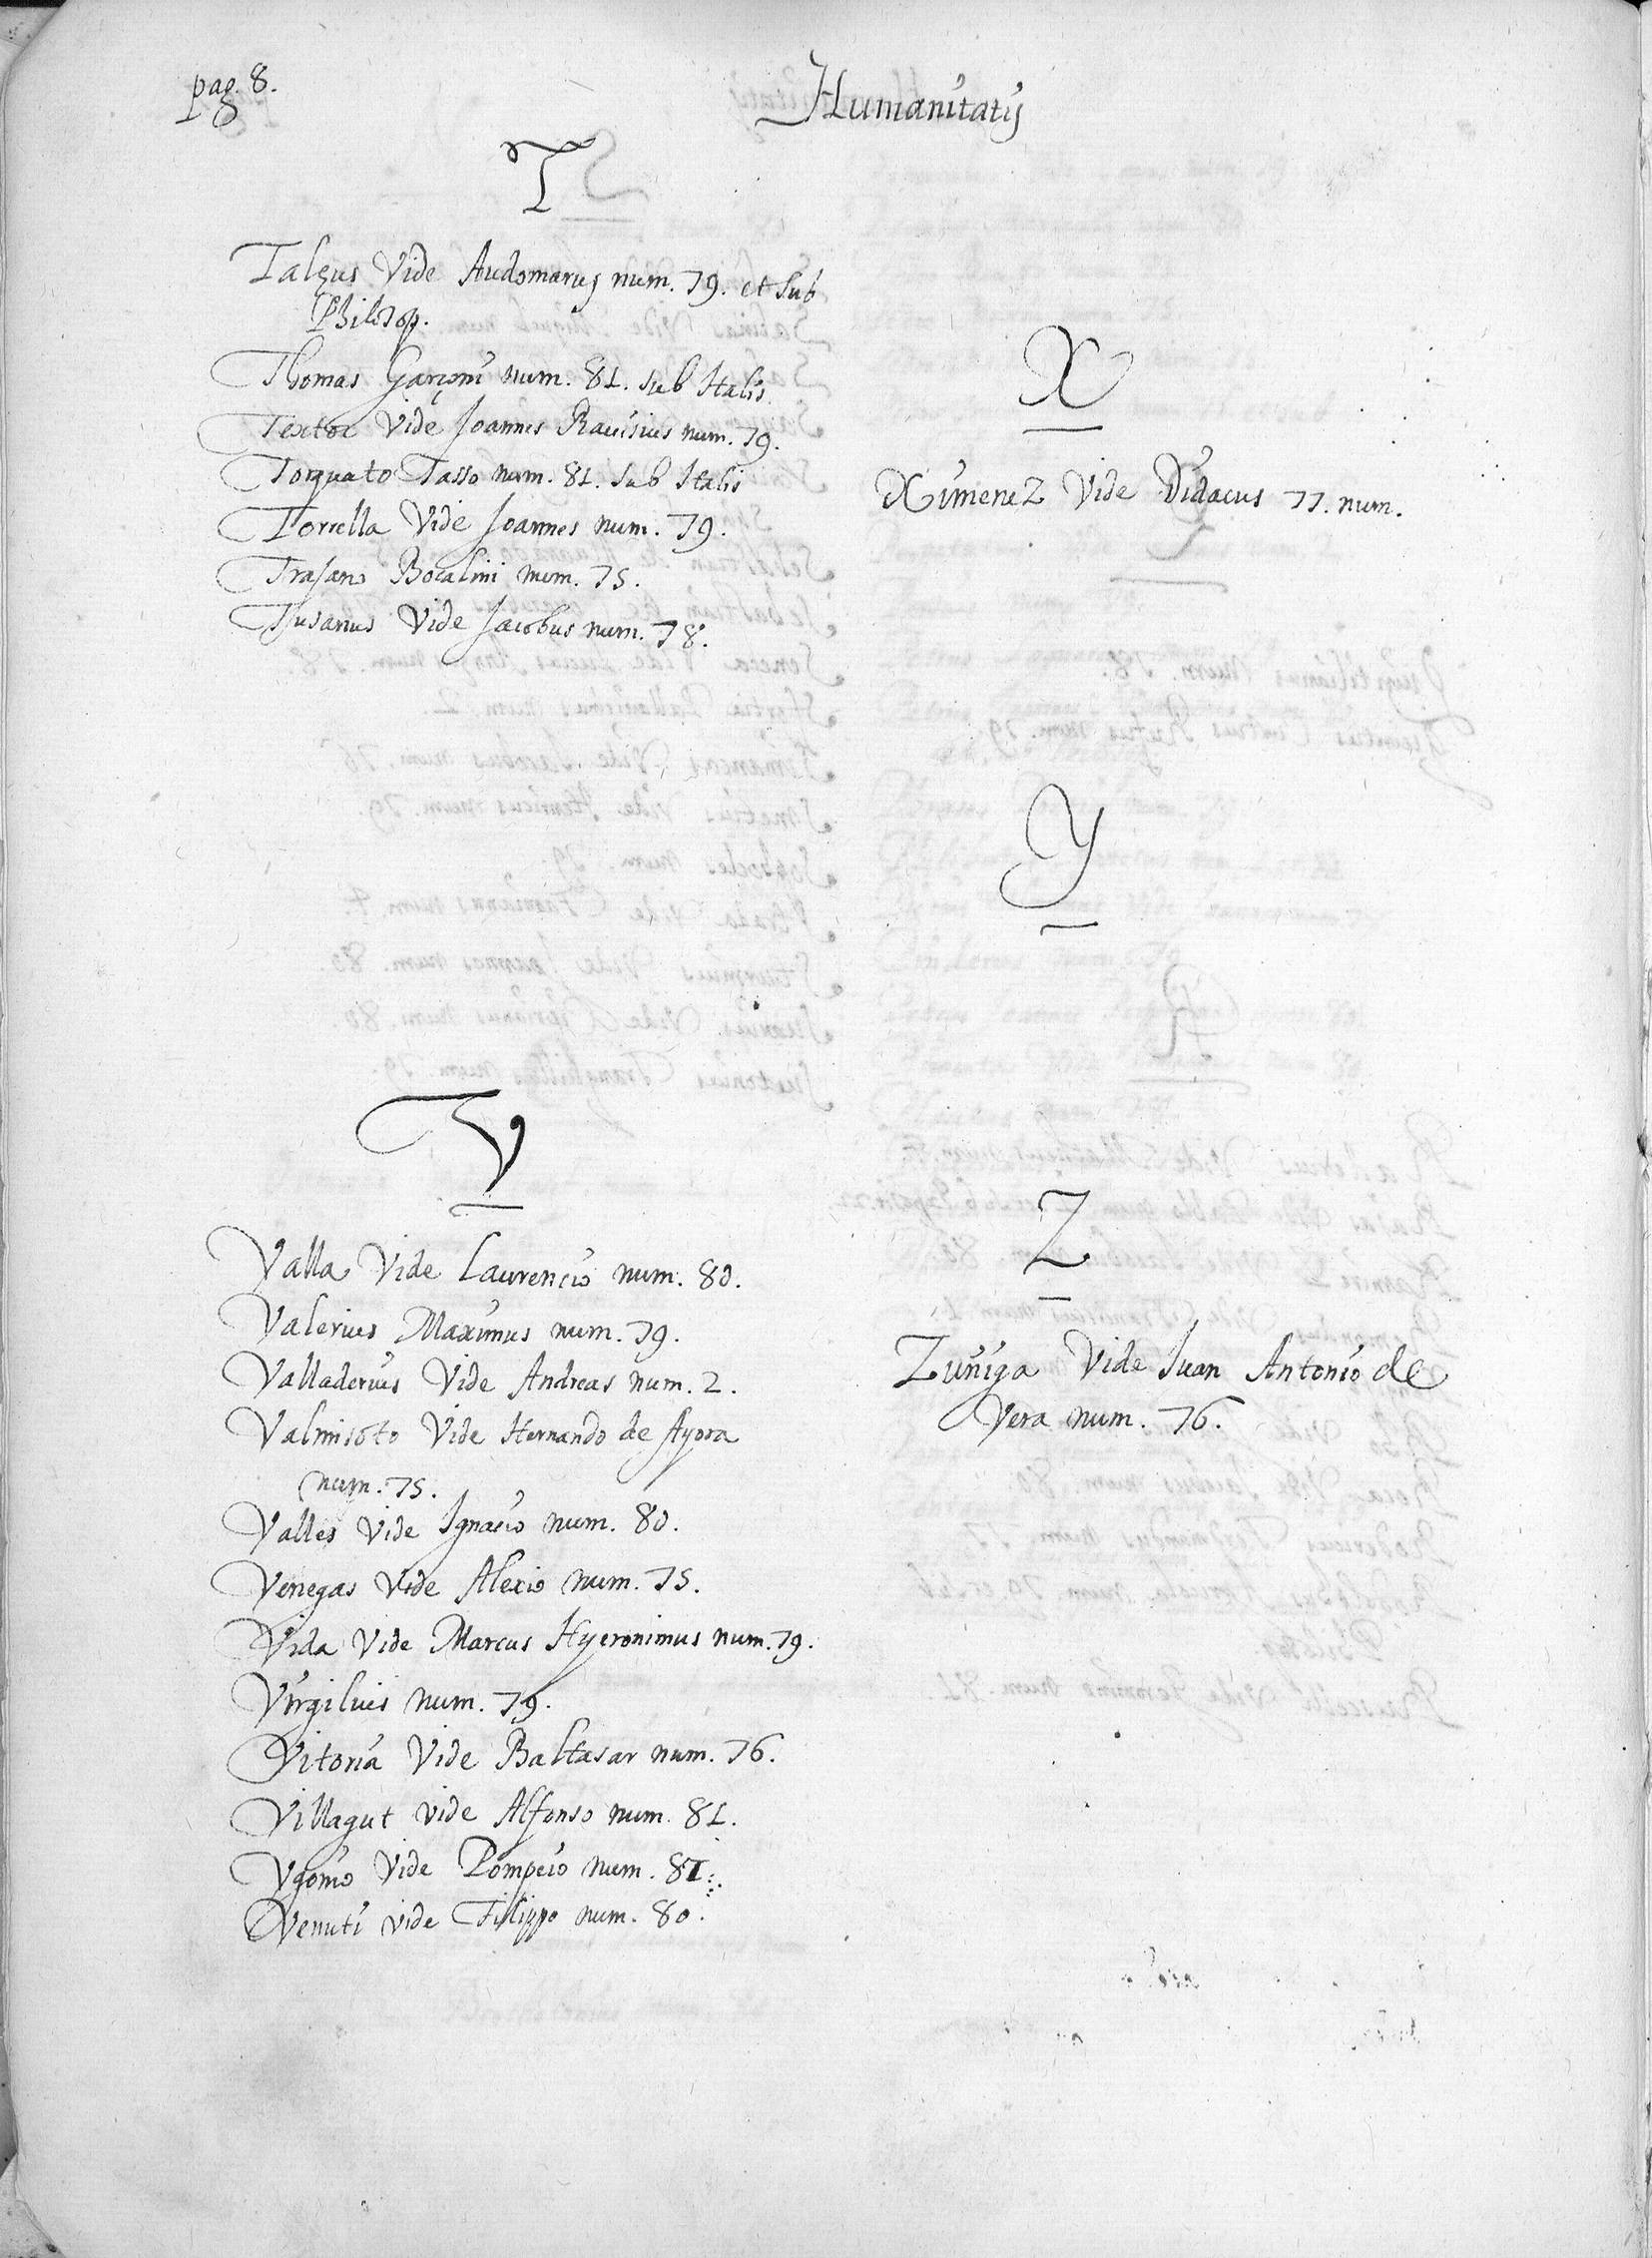 pag. 8.
Humanitatis
T
Talęus Vide Audomarus num. 79. et sub
Philosop.
Thomas Garçoni num. 81. sub Italis
Textor Vide Joannes Rauisius num. 79.
Torquato Tasso num. 81. sub Italis
Torrella Vide Joannes num. 79.
Trajano Bocalini num. 75.
Tusanus Vide Jacobus num. 78.
V
Valla Vide Laurencio num. 80.
Valerius Maximus num. 79.
Valladerius Vide Andreas num. 2.
Valmisoto Vide Hernando de Ayora
num. 75.
Valles Vide Ignacio num. 80.
Venegas Vide Alexio num. 75.
Vida Vide Marcus Hyeronimus num. 79.
Virgilius num. 79.
Vitoria Vide Baltasar num. 76.
Villagut vide Alfonso num. 81.
Vgonio Vide Pompeio num. 81.
Venuti vide Filippo num. 80.
X
Ximenez Vide Didacus 77. num.
Y
Z
Zuñiga Vide Juan Antonio de
Vera num. 76.